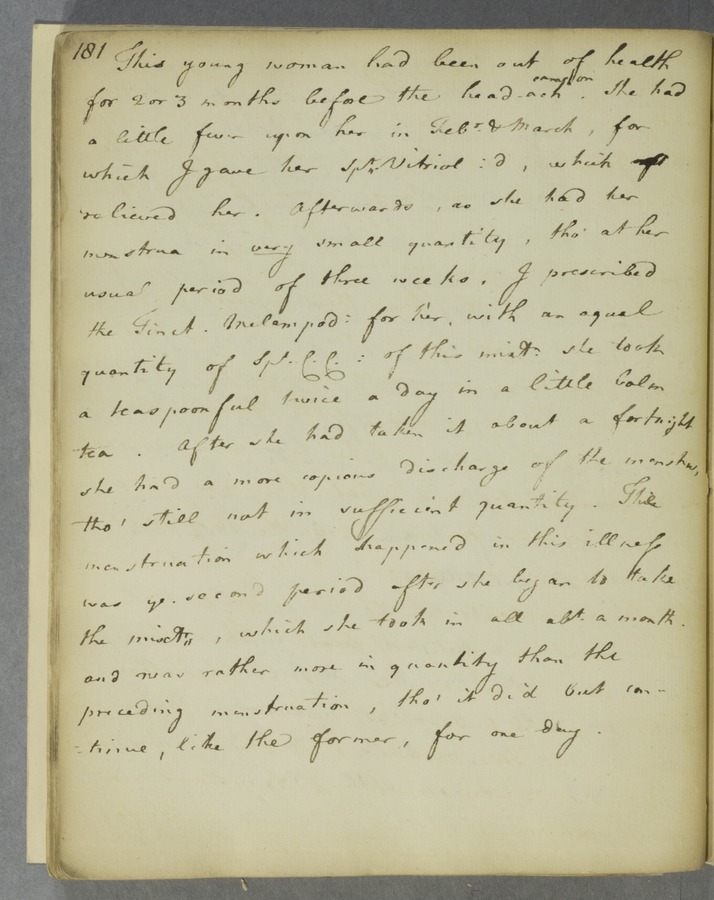 181 This young woman had been out of health
for 2 or 3 months before the head-ach came on. She had
a little fever upon her in Febr. & March, for
which I gave her Spt. Vitriol :d, which
relieved her. Afterwards, as she had her
menstrua in very small quantity, tho' at her
usual period of three weeks. I prescribed
the Tinct. Melampod: for her, with an equal
quantity of Spt. C.C.: of this mixt: she took
a teaspoonful twice a day in a little balm
tea. After she had taken it about a fortnight
she had a more copious discharge of the menstrua,
tho' still not in sufficient quantity. The
menstruation which happened in this illness
was ye. second period after she began to take
the mixtr, which she took in all abt. a month.
and was rather more in quantity than the
preceding menstruation, tho' it did but con-
-tinue, like the former, for one day.